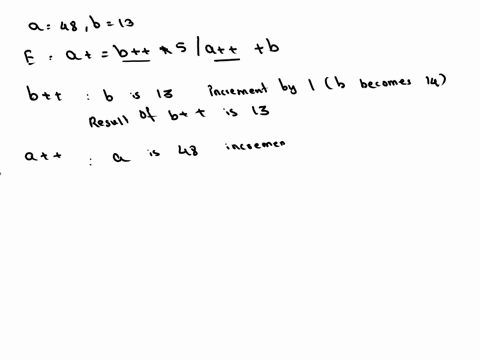 a = 48, b = 13
E : a+ = b++ * 5 / a++ + b
b++ : b is 13 increment by 1 (b becomes 14)
Result of b++ is 13
a++ : a is 48 incremen